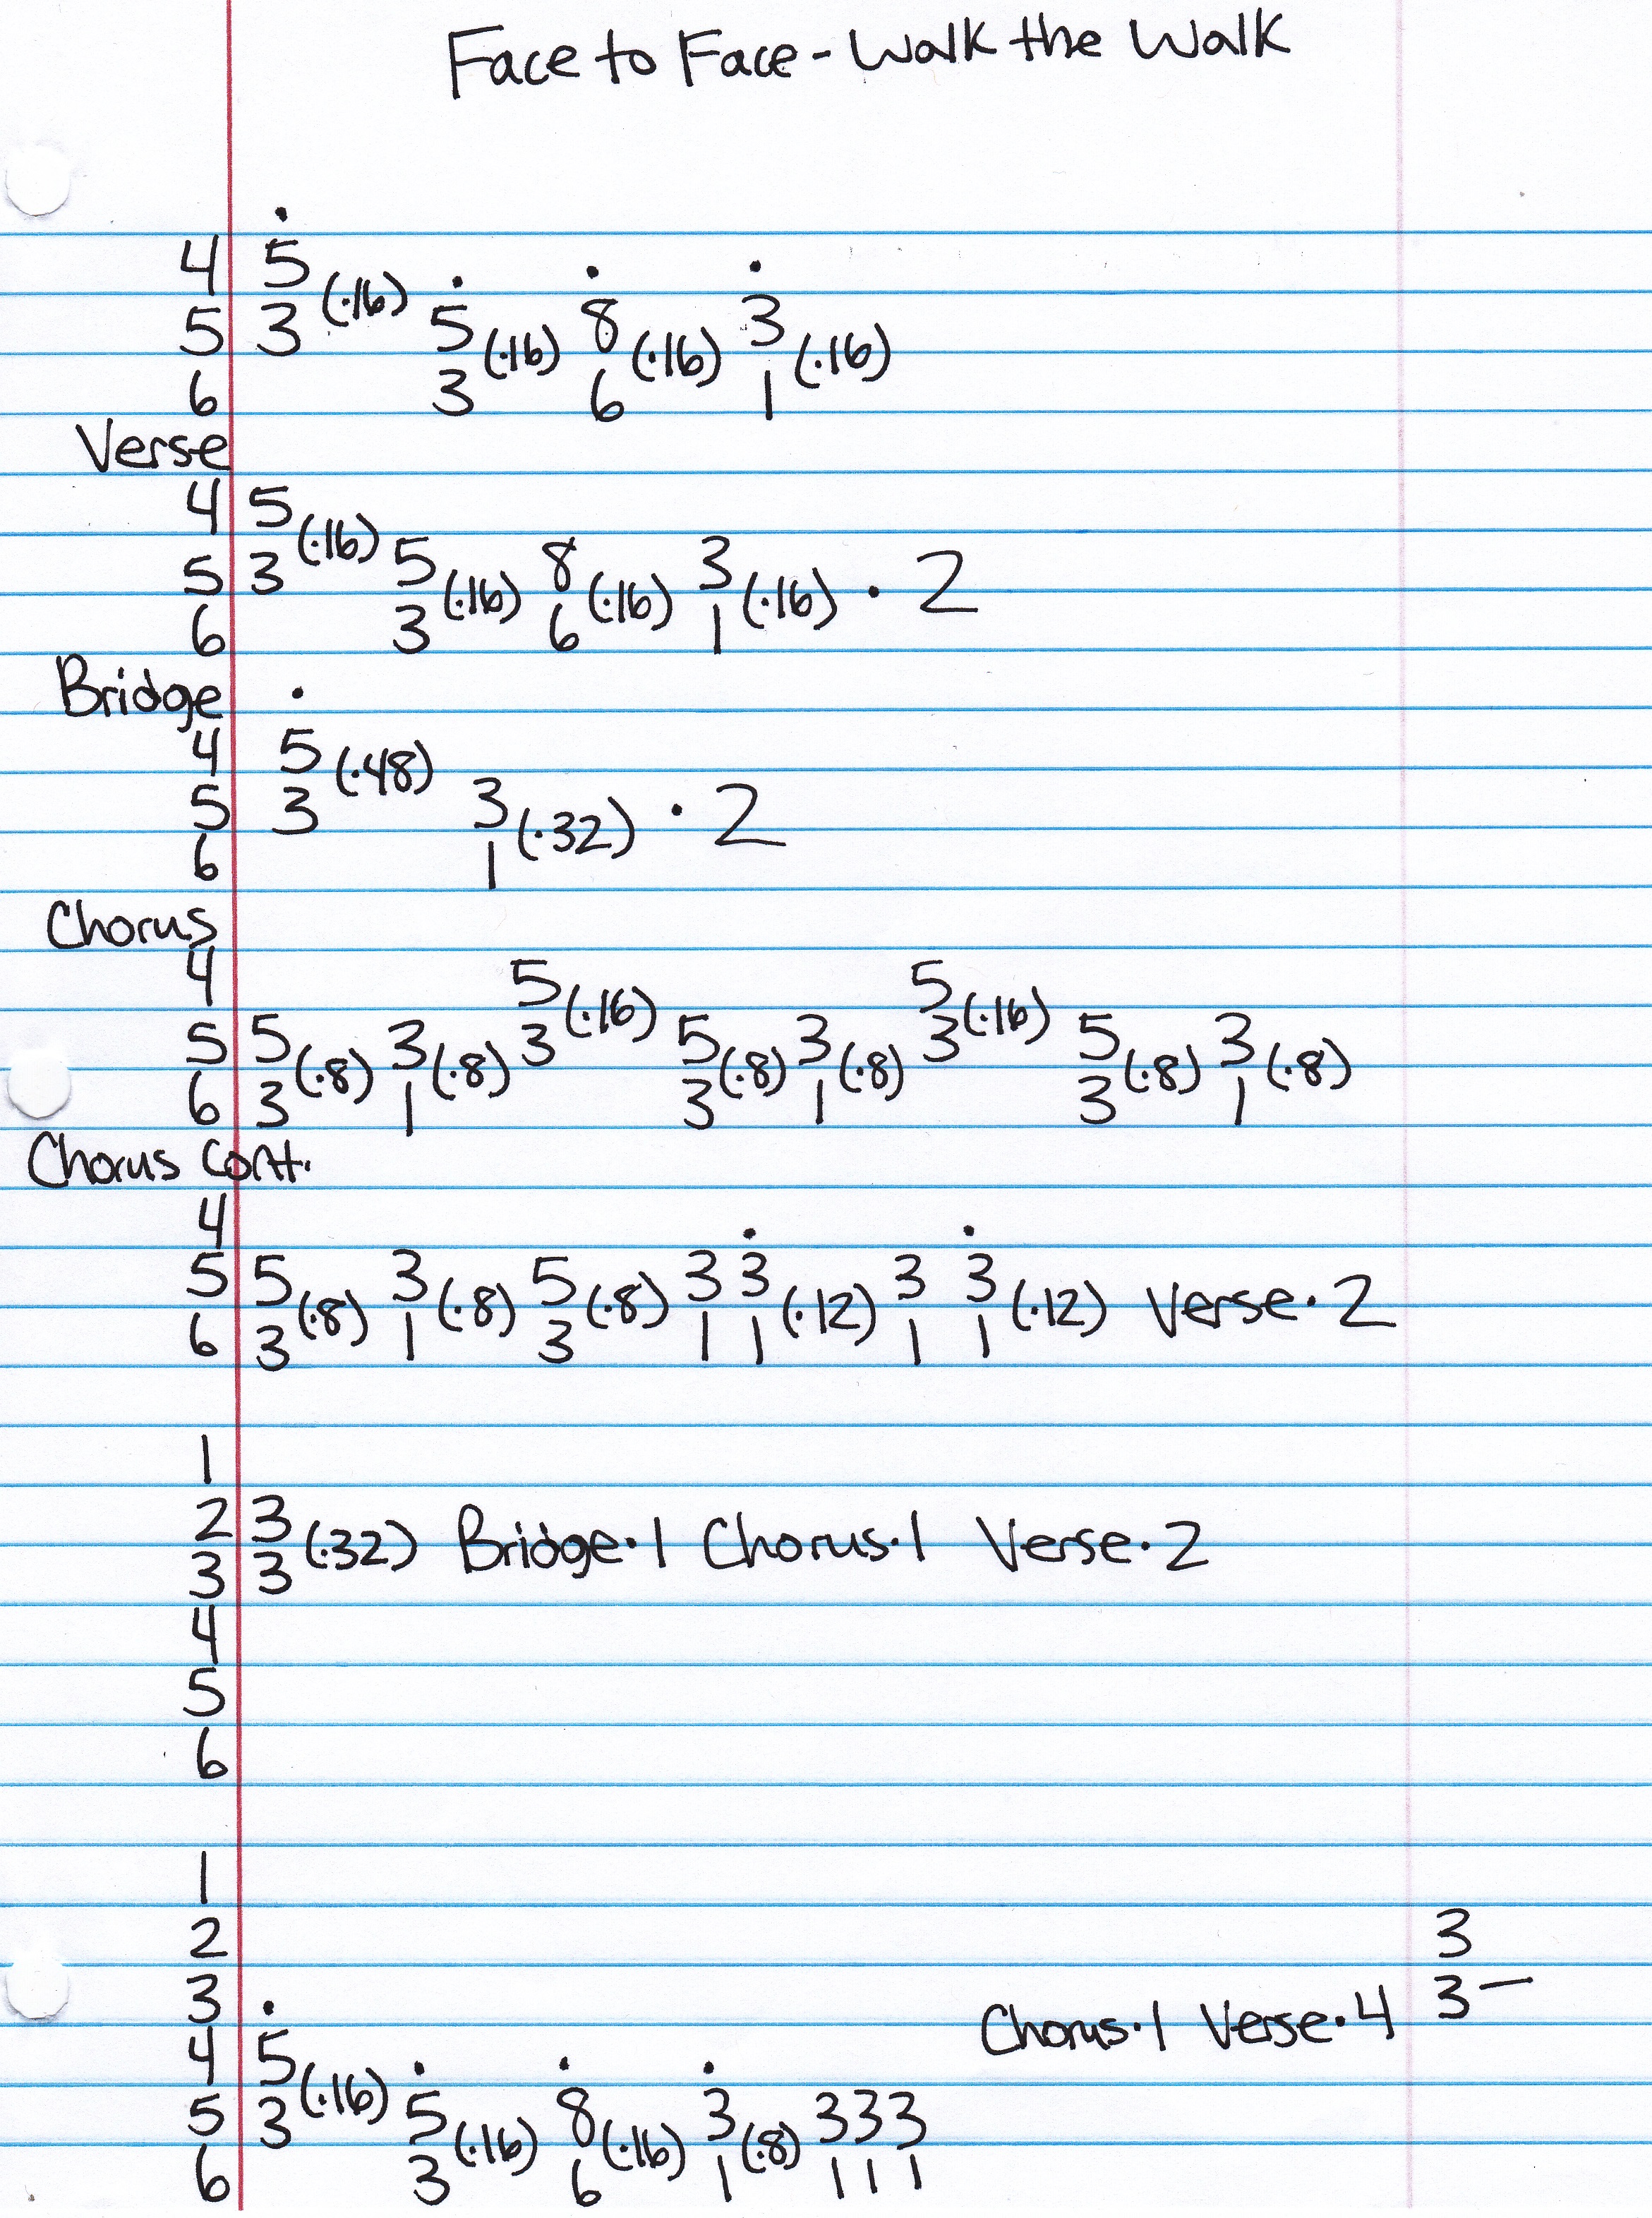 Face to Face - Walk the Walk
4 5̇ (·16)
5 3 5̇ (·16) 8̇ (·16) 3̇ (·16)
6 3 6 1
Verse
4 5 (·16)
5 3 5 (·16) 8 (·16) 3 (·16) · 2
6 3 6 1
Bridge ·
4 5 (·48)
5 3 3 (·32) · 2
6 1
Chorus
4 5 (·16) 5 (·16)
5 5 (·8) 3 (·8) 3 5 (·8) 3 (·8) 3 5 (·8) 3 (·8)
6 3 1 3 1 3 1
Chorus cont.
4 · ·
5 5 (·8) 3 (·8) 5 (·8) 3 3 (·12) 3 3 (·12) Verse · 2
6 3 1 3 1 1 1 1
1
2 3 (·32) Bridge · 1 Chorus · 1 Verse · 2
3 3
4
5
6
1
2 3
3 · Chorus · 1 Verse · 4 3 —
4 5 (·16) · · ·
5 3 5 (·16) 8 (·16) 3 (·8) 3 3 3
6 3 6 1 1 1 1